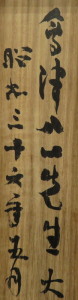 會津八一先生大
昭和三十六年五月